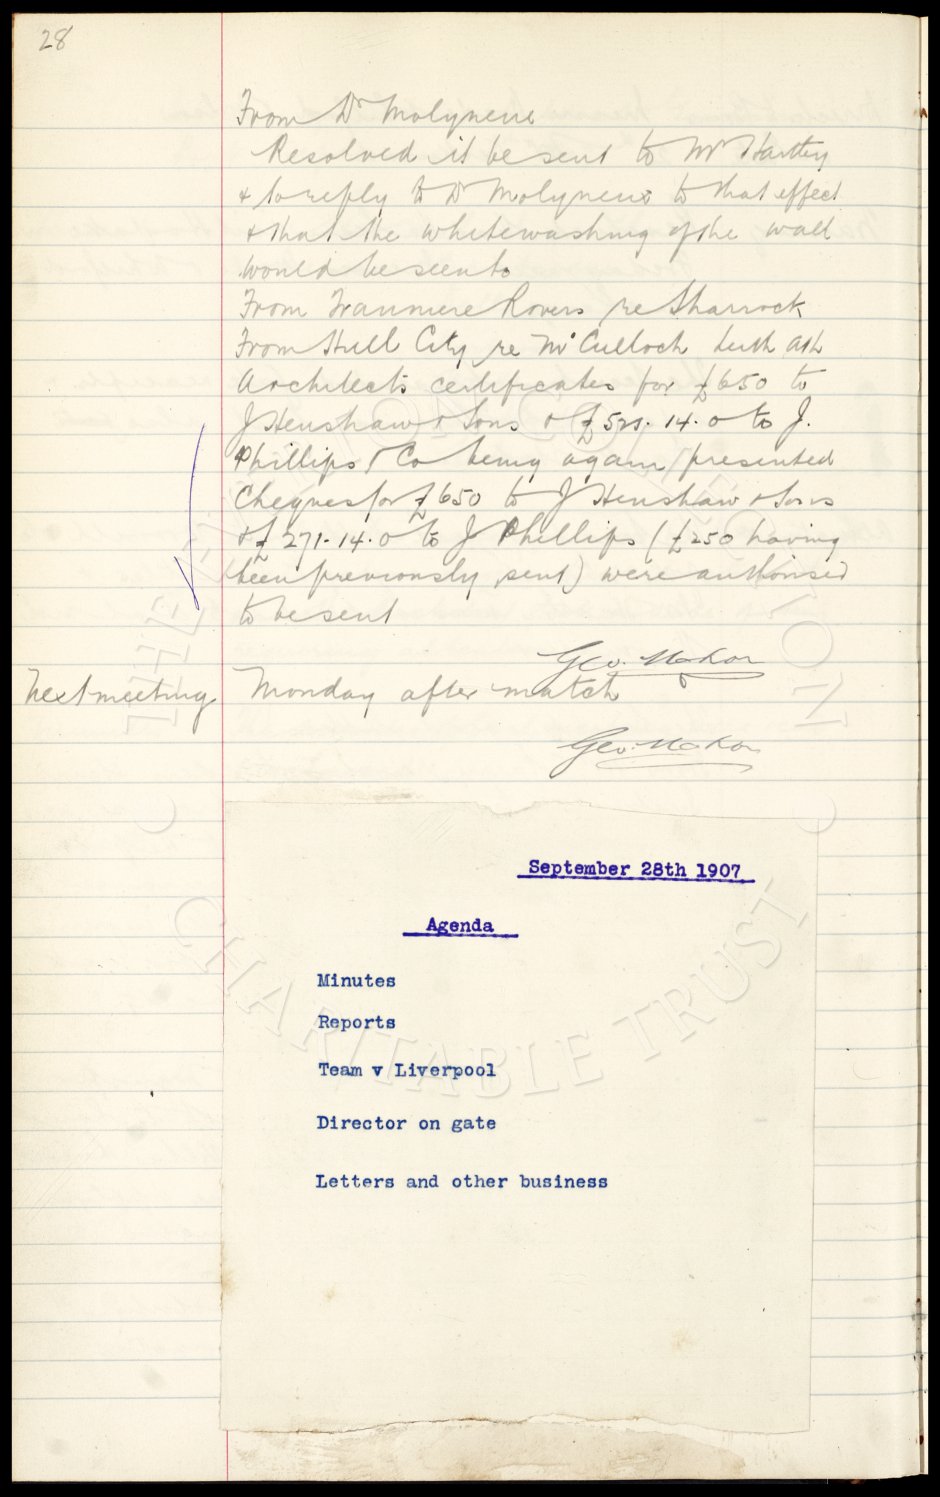 28
From Dr Molyneux
Resolved it be sent to Mr Hartley
& to reply to Dr Molyneux to that effect
& that the whitewashing of the wall
would be seen to
From Tranmere Rovers re Sharrock
From Hull City re McCulloch
Architects certificates for £650 to
J Henshaw & Sons & £521.14.0 to J.
Phillips & Co being again presented
Cheques for £650 to J Henshaw & Sons
& £271.14.0 to J Phillips (£250 having
been previously sent) were authorised
to be sent
Geo. Mahon
Next meeting Monday after match
Geo. Mahon
September 28th 1907
Agenda
Minutes
Reports
Team v Liverpool
Director on gate
Letters and other business
THE EVERTON COLLECTION
CHARITABLE TRUST